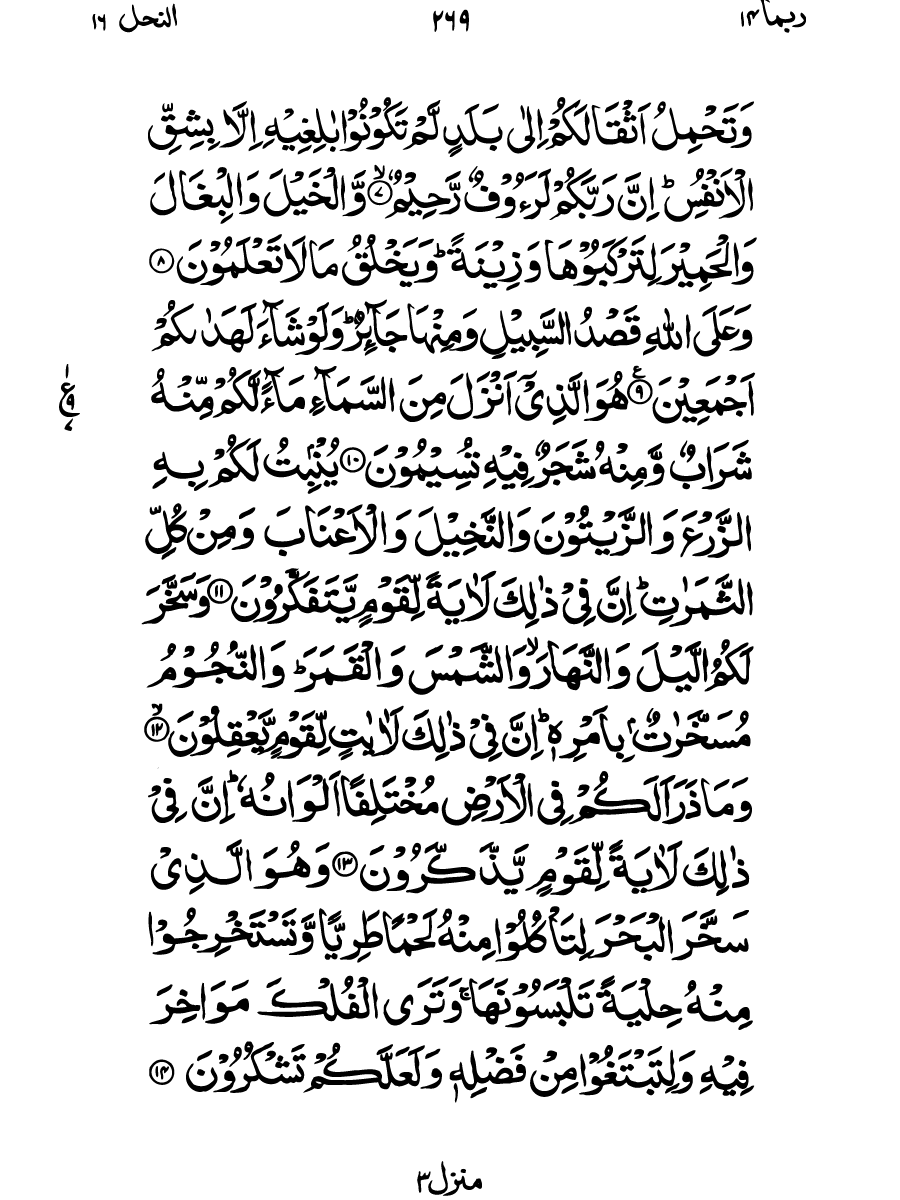 ربما ١۴ ٢٦٩ النحل ١٦
وَتَحْمِلُ اَثْقَالَكُمْ اِلٰى بَلَدٍ لَّمْ تَكُوْنُوْا بٰلِغِيْهِ اِلَّا بِشِقِّ
الْاَنْفُسِ ؕ اِنَّ رَبَّكُمْ لَرَءُوْفٌ رَّحِيْمٌ ۙ﴿٧﴾ وَّالْخَيْلَ وَالْبِغَالَ
وَالْحَمِيْرَ لِتَرْكَبُوْهَا وَزِيْنَةً ؕ وَيَخْلُقُ مَا لَا تَعْلَمُوْنَ ﴿٨﴾
وَعَلَى اللّٰهِ قَصْدُ السَّبِيْلِ وَمِنْهَا جَآئِرٌ ؕ وَلَوْ شَآءَ لَهَدٰىكُمْ
اَجْمَعِيْنَ ﴿٩﴾ هُوَ الَّذِيْۤ اَنْزَلَ مِنَ السَّمَآءِ مَآءً لَّكُمْ مِّنْهُ
شَرَابٌ وَّمِنْهُ شَجَرٌ فِيْهِ تُسِيْمُوْنَ ﴿١٠﴾ يُنْۢبِتُ لَكُمْ بِهِ
الزَّرْعَ وَالزَّيْتُوْنَ وَالنَّخِيْلَ وَالْاَعْنَابَ وَمِنْ كُلِّ
الثَّمَرٰتِ ؕ اِنَّ فِيْ ذٰلِكَ لَاٰيَةً لِّقَوْمٍ يَّتَفَكَّرُوْنَ ﴿١١﴾ وَسَخَّرَ
لَكُمُ الَّيْلَ وَالنَّهَارَ ۙ وَالشَّمْسَ وَالْقَمَرَ ؕ وَالنُّجُوْمُ
مُسَخَّرٰتٌۢ بِاَمْرِهٖ ؕ اِنَّ فِيْ ذٰلِكَ لَاٰيٰتٍ لِّقَوْمٍ يَّعْقِلُوْنَ ۙ﴿١٢﴾
وَمَا ذَرَاَ لَكُمْ فِي الْاَرْضِ مُخْتَلِفًا اَلْوَانُهٗ ؕ اِنَّ فِيْ
ذٰلِكَ لَاٰيَةً لِّقَوْمٍ يَّذَّكَّرُوْنَ ﴿١٣﴾ وَهُوَ الَّذِيْ
سَخَّرَ الْبَحْرَ لِتَاْكُلُوْا مِنْهُ لَحْمًا طَرِيًّا وَّتَسْتَخْرِجُوْا
مِنْهُ حِلْيَةً تَلْبَسُوْنَهَا ۚ وَتَرَى الْفُلْكَ مَوَاخِرَ
فِيْهِ وَلِتَبْتَغُوْا مِنْ فَضْلِهٖ وَلَعَلَّكُمْ تَشْكُرُوْنَ ﴿١۴﴾
منزل ٣